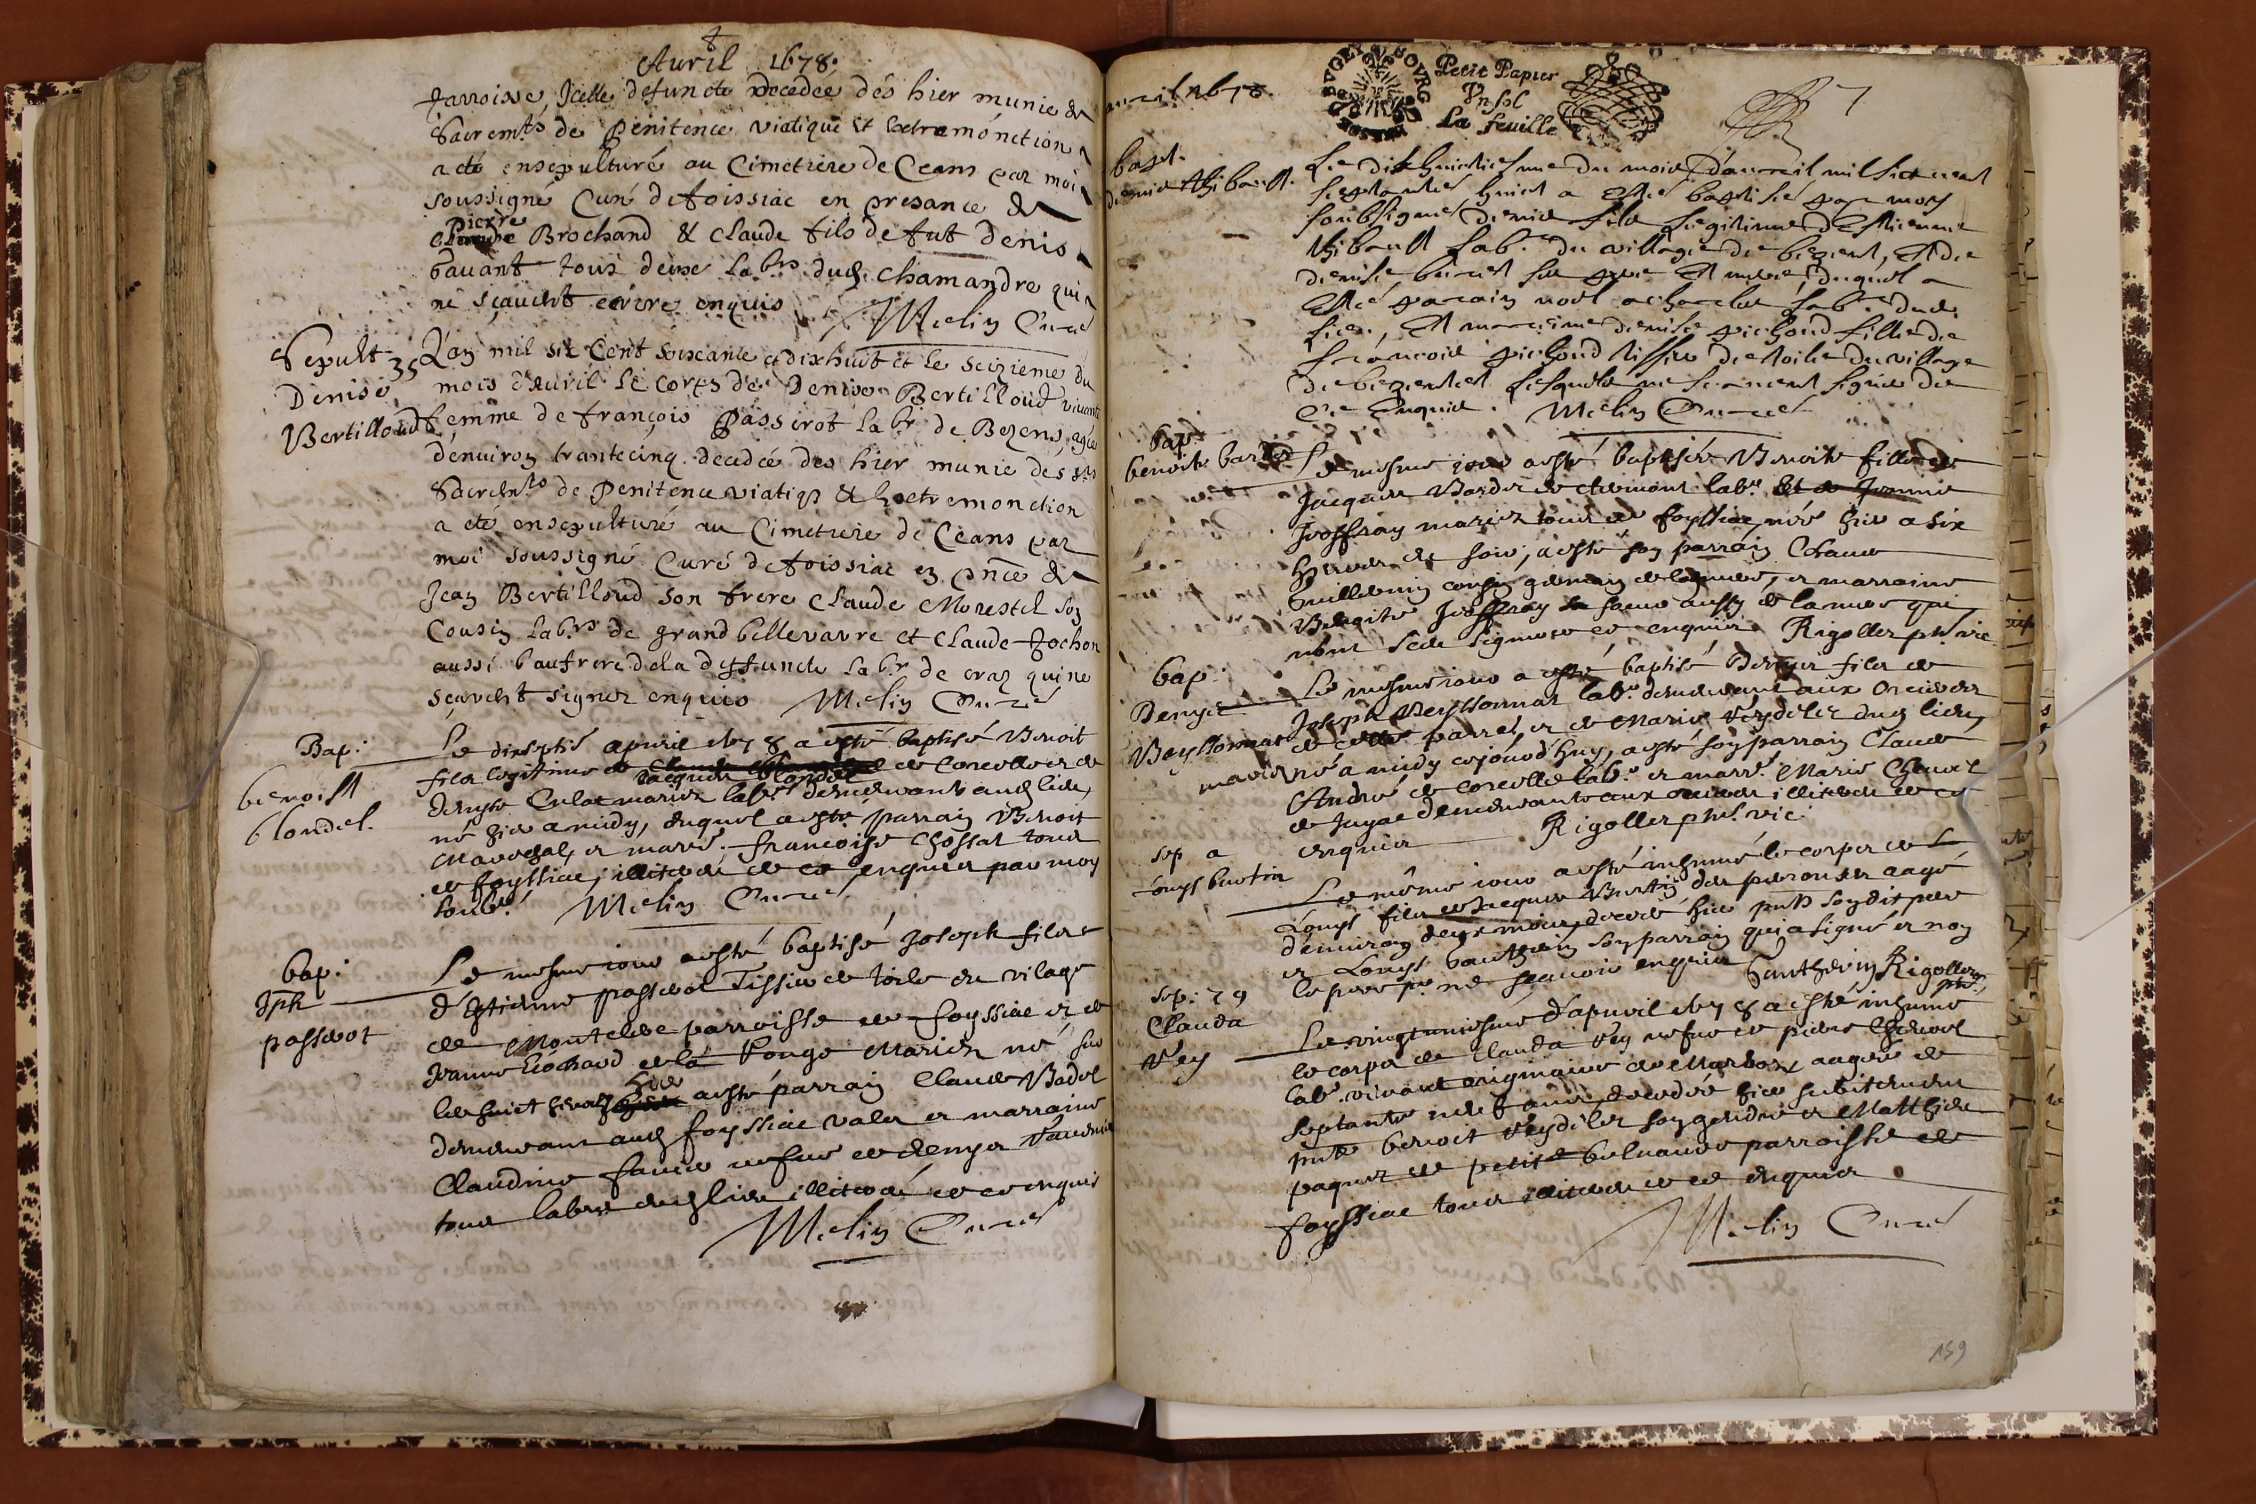 Avril 1678.
parroisse, Icelle defuncte decedée dés hier munie de
Sacremts de Penitence viatique et extremónction
a eté ensepulturé au Cimetiere de Ceans par moi
soussigné Curé de foissiac en presance de
Pierre
Brochand & Claude fils de fut denis
bavant tous deux labrs dud. Chamandre qui
ne sçavent ecrire enquis Melin Curé
Sepult. 35
Denise
Bertilloud
L'an mil six Cent soixante et dix huit et le seizieme du
mois d'avril le corps de Denise Bertilloud vivante
femme de françois Passerot labr de Bezens, agée
d'environ trantecinq decedée des hier munie des
Sacremts de Penitence viatiqz & hextremonction
a eté ensepulturé au Cimetiere de Ceans par
moi soussigné Curé de foissiac en pnce de
Jean Bertilloud son frere Claude Morestel son
Cousin labrs de grand bellevavre et Claude Jochon
aussi baufrere de la defuncte labr de craz qui ne
sçavent signer enquis Melin Curé
Bap.
benoist
blondel.
Le dixseptie apvril 1678 a esté baptisé Benoit
filz legitime de
Jacques blondel
de Corcelle et de
denyse mariez labrs demeurants aud lieu,
né hier a midy, duquel a esté parrain Benoit
Marechal, et marre. francoise Chossat tous
de foyssiac, illiterés de ce enquis par moy
soubs. Melin Curé
bap.
Jph
passerot
Le mesme iour a esté baptisé Joseph filz
d'Estienne passerot Tissier de toile du vilage
de Montelie parroisse de foyssiac et de
Jeanne de la Ronge Mariez né sur
les huict heures
hier
a esté parrain Claude Badol
demeurant aud foyssiac valet et marraine
Claudine favier vefve de denys
tous labrs dud lieu illiteré de ce enquis
Melin Curé
avril 1678.
BVGEY BOVRG
Petit Papier
Vn sol
La feuille
7
bapt.
denis thibault.
Le dix huictiesme du mois d'avril mil six cent
septante huict a esté baptisé par moy
soubsigné denis fils legitime d'Estienne
thibault labr. du village de bezent, et de
denise buret ses pere et mere, duquel a
esté parain noel labr. dud.
lieu, et marrine denise pichoud fillie de
françois pichoud tissier de toile du village
de bezentet lesquels ne scavent signer de
ce Enquis. Melin Curé
bap.
benoite bardet
Le mesme iour a esté baptisée Benoite fille de
Jacques Bardet de clermont labr. et de Jeanne
Joffray mariez tous de foyssiac, née hier a six
heures du soir, a esté son parrain Claude
Guillemin cousin germain de la mere, et marraine
Benoite Joffray sa soeur aussy de la mere qui
n'ont sceu signer de ce enquis Rigollet ptre vic
bap.
Denyse
Beyssonnat
Le mesme iour a esté baptisé Denyse filz de
Joseph Beyssonnat labr. demeurant aux
de cette parre, et de Marie Veydelez dud lieu,
mariez né a midy cejourd'huy, a esté son parrain Claude
André de Corcelle labr. et marre. Marie Chevrel
de Jayac demeurante aux illiterés de ce
enquis Rigollet ptre. vic.
sep a
Louys burtin
Le même iour a esté inhumé le corps de
Louys filz de Jacques Burtin des perouses aagé
d'environ deux mois, decedé hier pnts son dit pere
et Louys Gauthein son parrain qui a signé et non
le pere pr. ne scavoir enquis Gautherin Rigollet
ptre.
sep: 79
Clauda
Vey
Le vingtuniesme d'apvril 1678 a esté inhumé
le corps de Clauda Vey vefve de pierre Chevrel
labr. vivant originaire de Marboz, aagée de
septante neuf ans, decedée hier subitement
pnts benoit Veydelez son gendre et Matthieu
paquet de petite belvavre parroisse de
foyssiac tous illiterés de ce enquis
Melin Curé
159